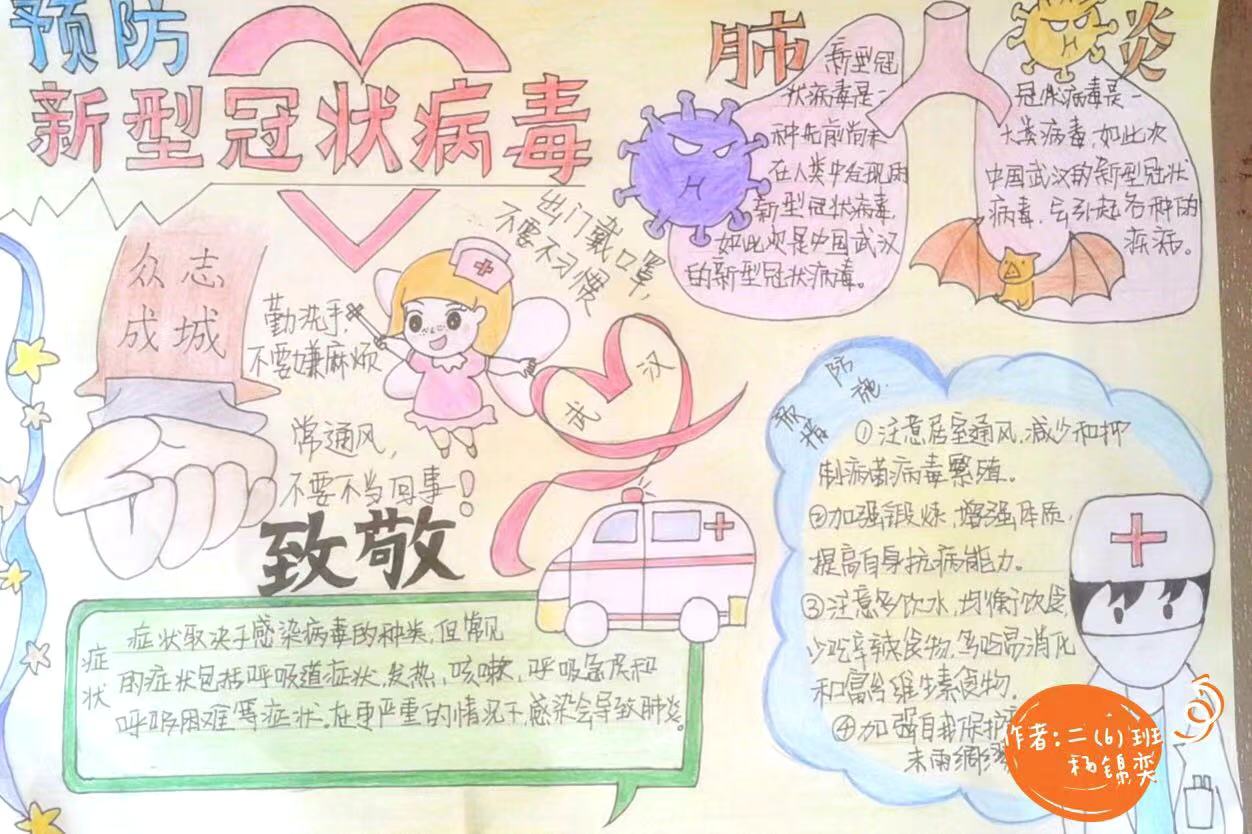 预防
新型冠状病毒
肺炎
新型冠
状病毒是一
种先前尚未
在人类中发现的
新型冠状病毒,
如此次是中国武汉
的新型冠状病毒。
冠状病毒是一
大类病毒,如此次
中国武汉的新型冠状
病毒,会引起各种的
疾病。
众志
成城
出门戴口罩,
不要不习惯
勤洗手,
不要嫌麻烦
常通风,
不要不当回事!
武汉
致敬
症状
症状取决于感染病毒的种类,但常见
的症状包括呼吸道症状,发热,咳嗽,呼吸急促和
呼吸困难等症状,在更严重的情况下感染会导致肺炎。
预防
措施
①注意居室通风,减少和抑
制病菌病毒繁殖。
②加强锻炼,增强体质,
提高自身抗病能力。
③注意多饮水,均衡饮食,
少吃辛辣食物,多吃易消化
和富含维生素食物,
④加强自我保护
未雨绸缪
作者:二(6)班
杨锦奕